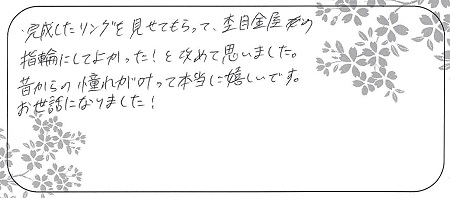 ・完成したリングを見せてもらって、杢目金屋さんの
指輪にしてよかった！と改めて思いました。
昔からの憧れが叶って本当に嬉しいです。
お世話になりました！